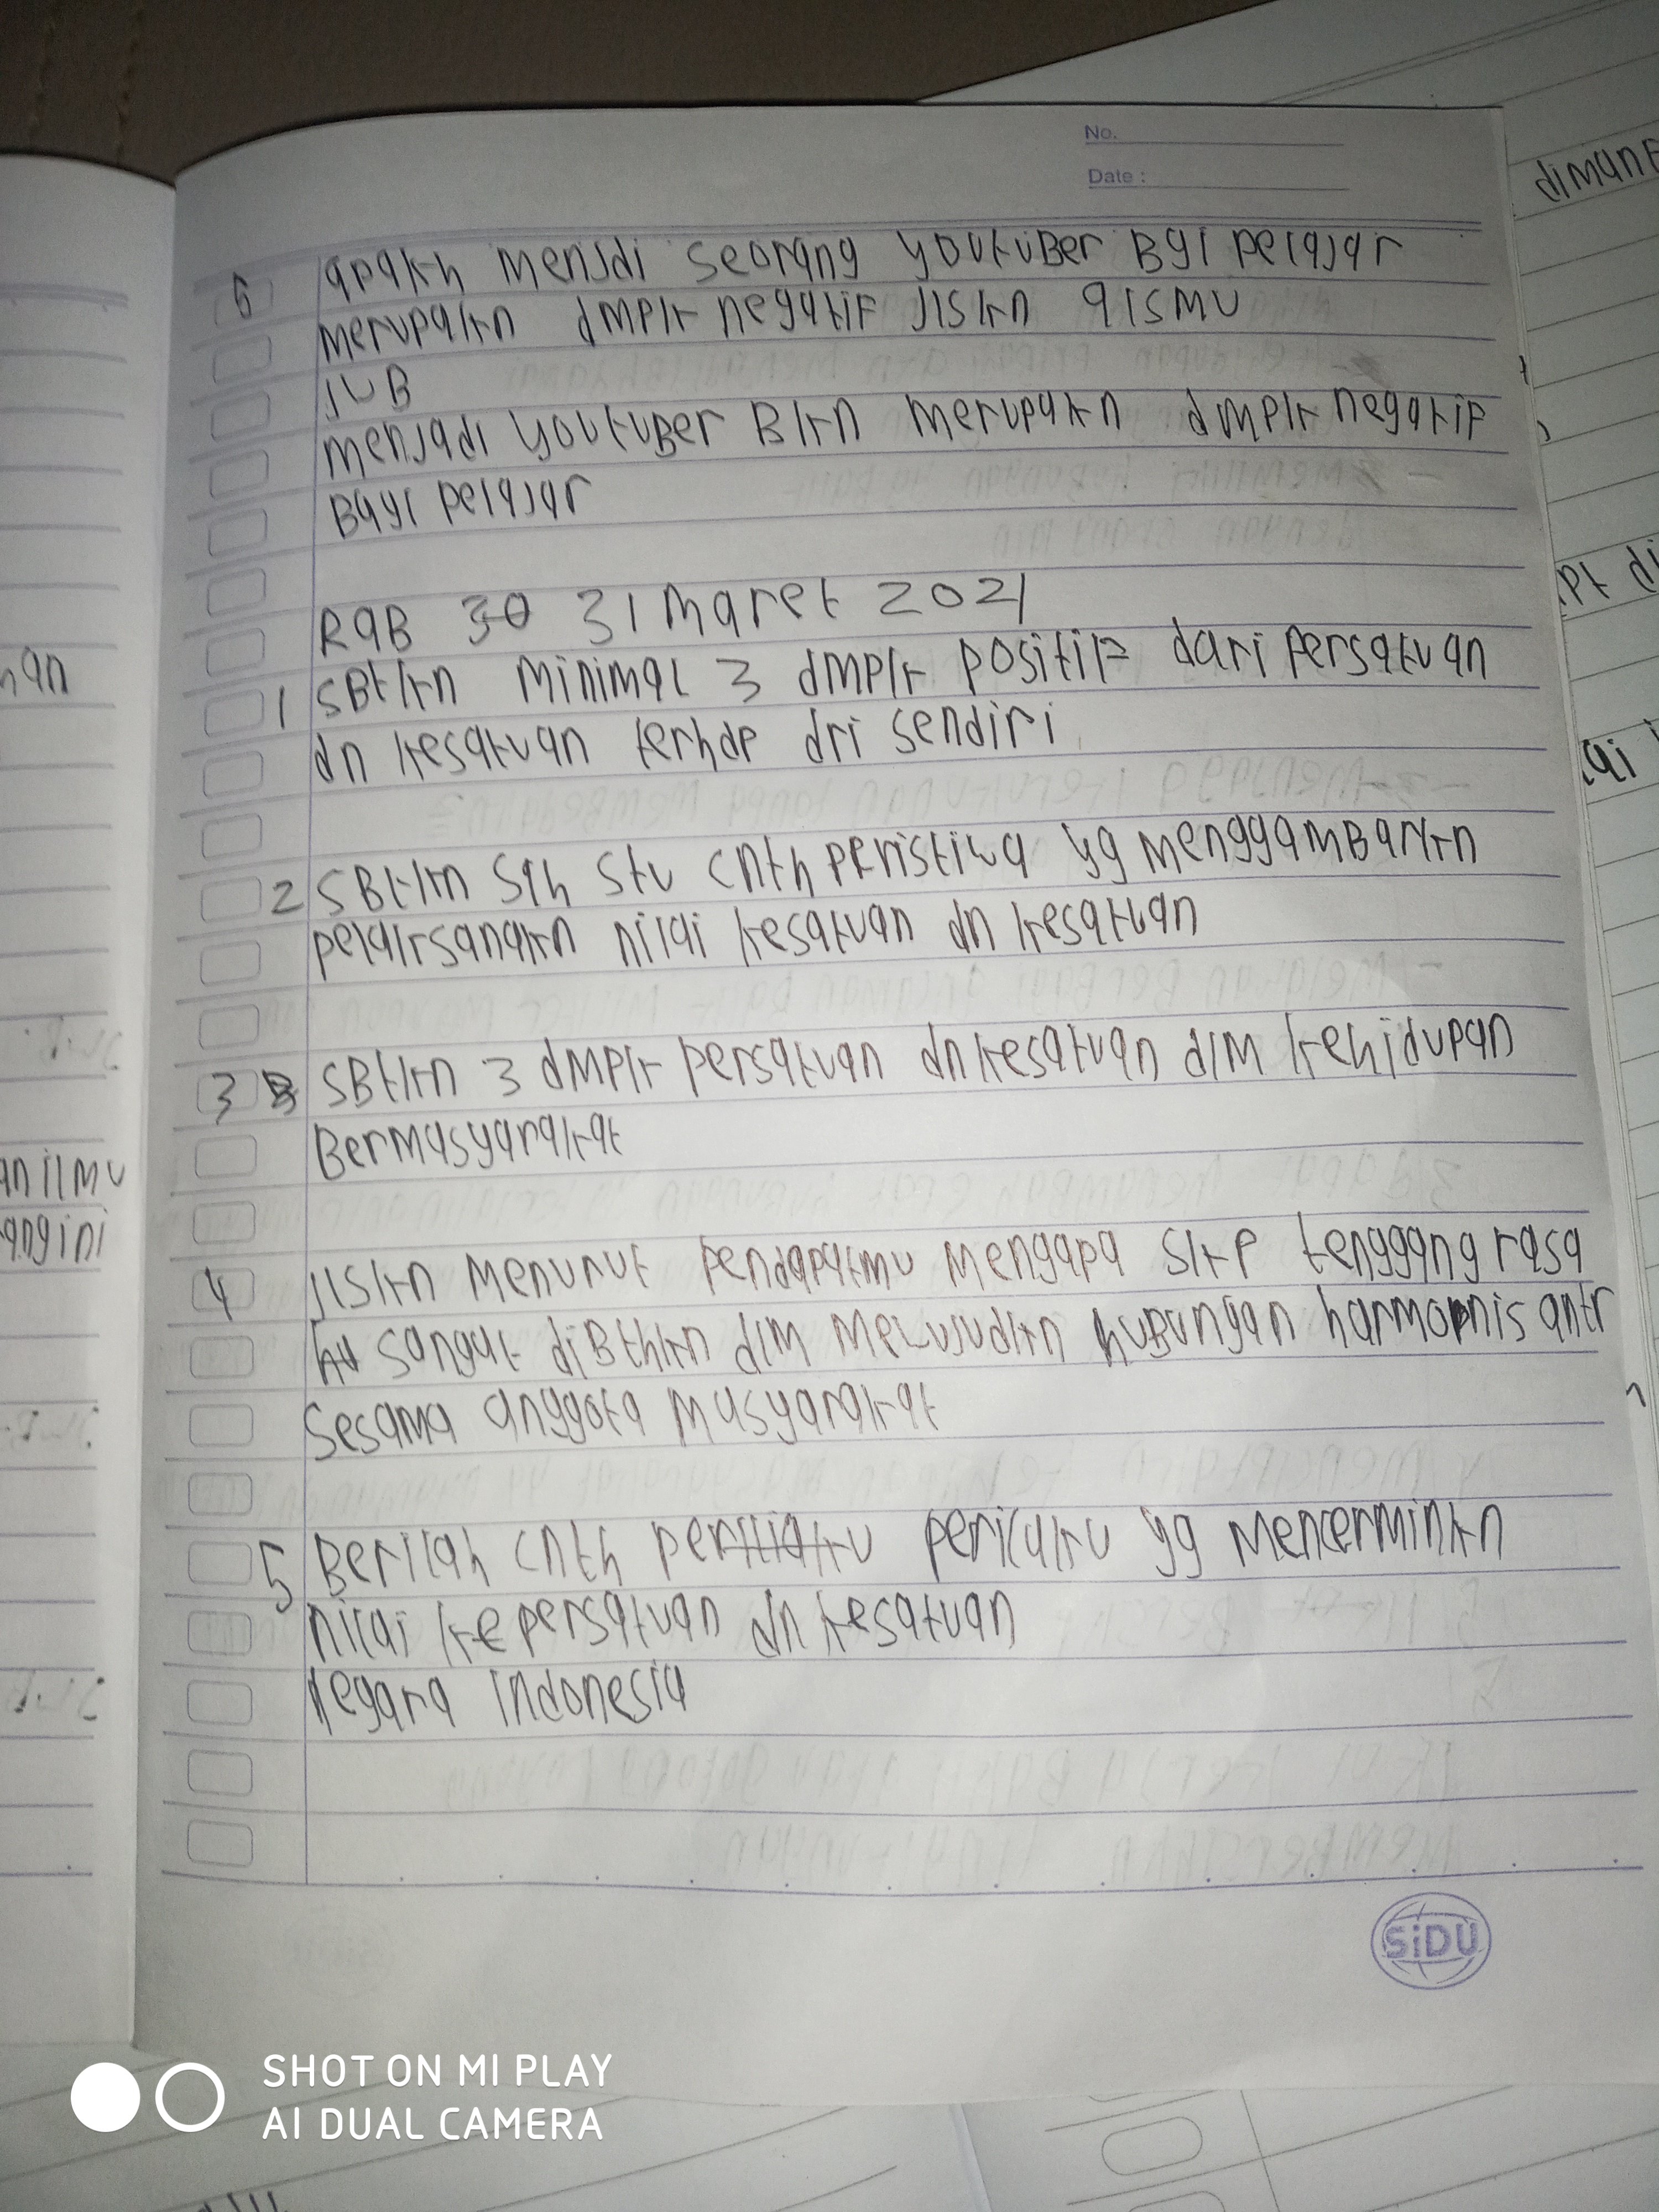 No.
Date :
6 apakh menjdi seorang youtuber Bgi pelajar
merupakn dmpk negatif jlskn alsmu
JwB
menjadi youtuber Bkn merupakn dmpk negatif
Bagi pelajar
RaB 30 31 maret 2021
1 SBtkn minimal 3 dmpk positif dari persatuan
dn kesatuan terhdp dri sendiri
2 SBtkn slh stu cnth peristiwa yg menggamBarkn
pelaksanakn nilai kesatuan dn kesatuan
3 SBtkn 3 dmpk persatuan dn kesatuan dlm kehidupan
Bermasyarakat
4 jlskn menurut pendapatmu mengapa skp tenggang rasa
sangat diBthkn dlm mewujudkn huBungan harmonis antr
sesama anggota masyarakat
5 Berilah cnth perilaku yg mencerminkn
nilai ke persatuan dn kesatuan
negara indonesia
SiDU
han
an ilmu
ang ini
dimana
pt di
lai
SHOT ON MI PLAY
AI DUAL CAMERA